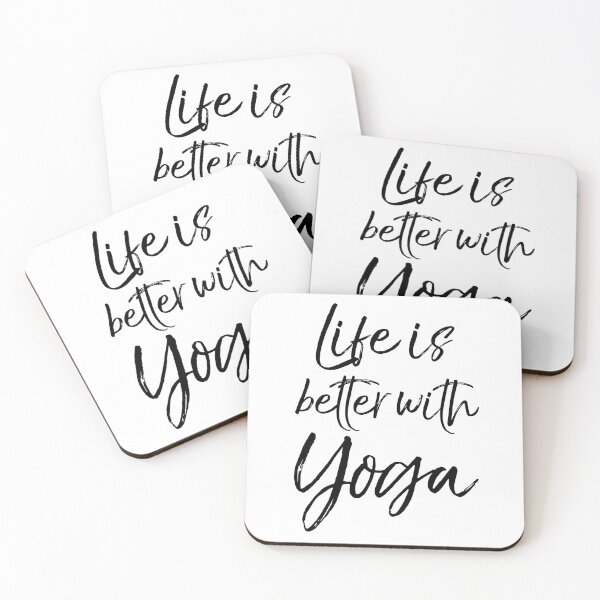 Life is
better with
Life is
better with
Yoga
Life is
better with
Yoga
Life is
better with
Yoga